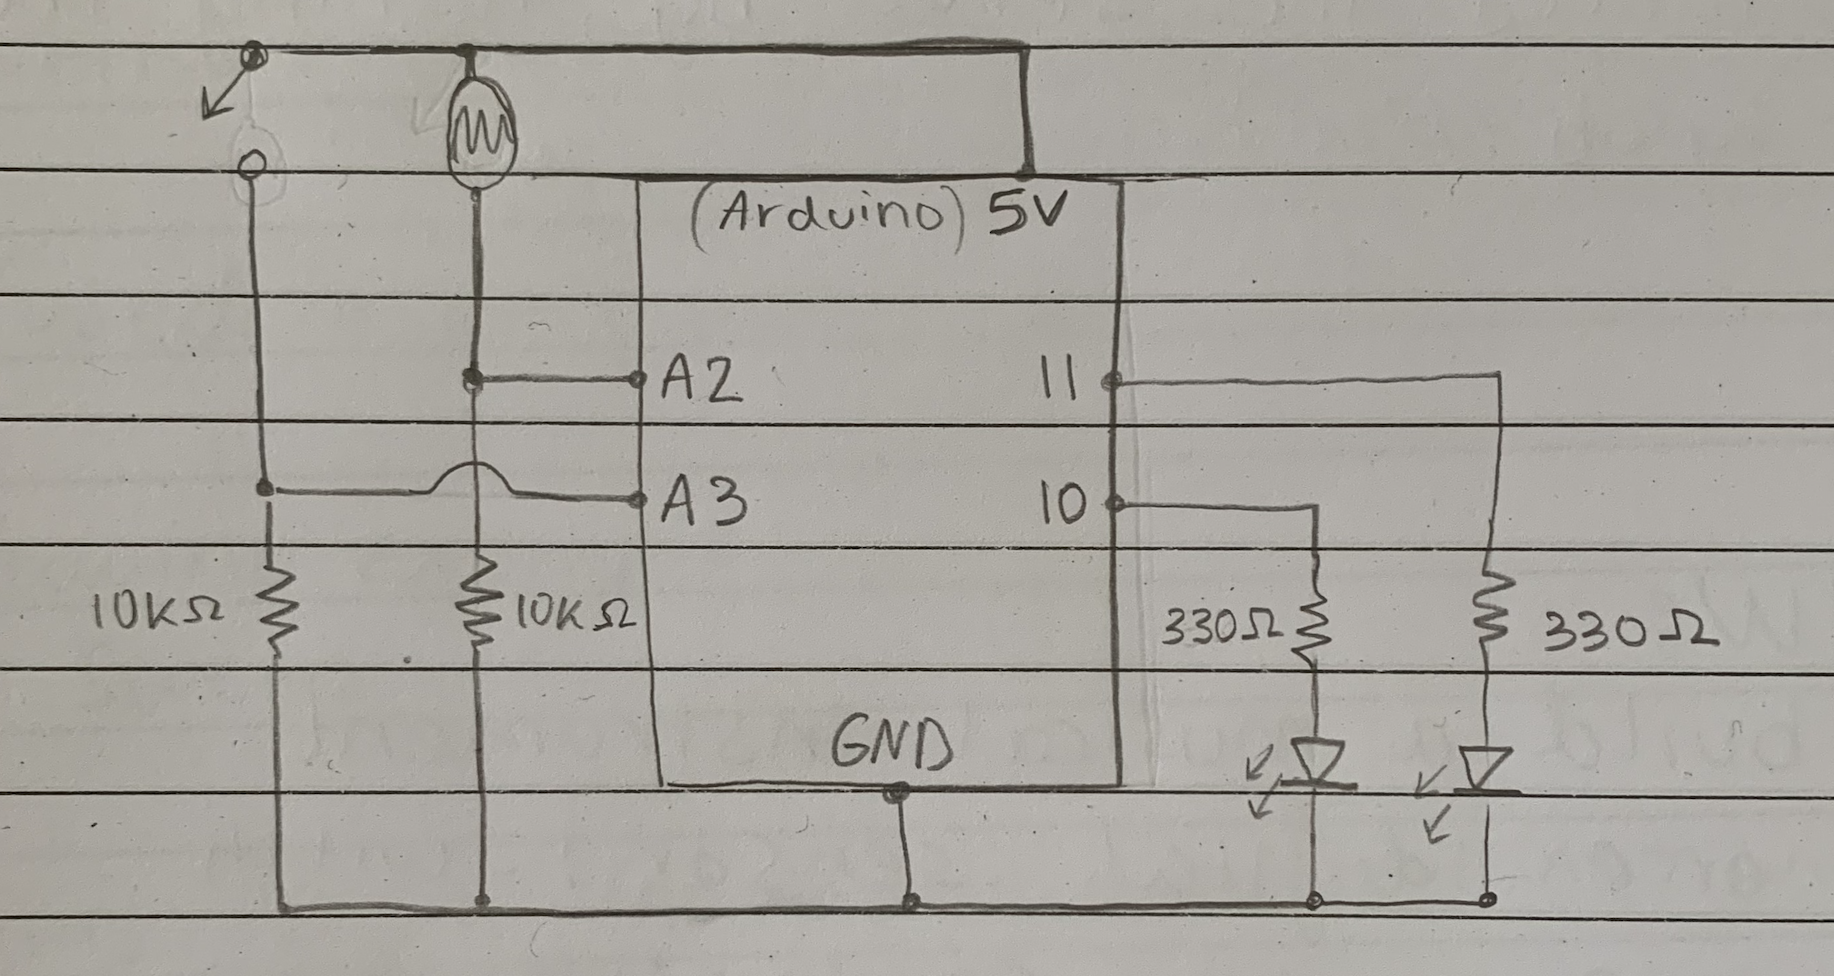 (Arduino) 5V
A2 11
A3 10
10KΩ 10KΩ 330Ω 330Ω
GND